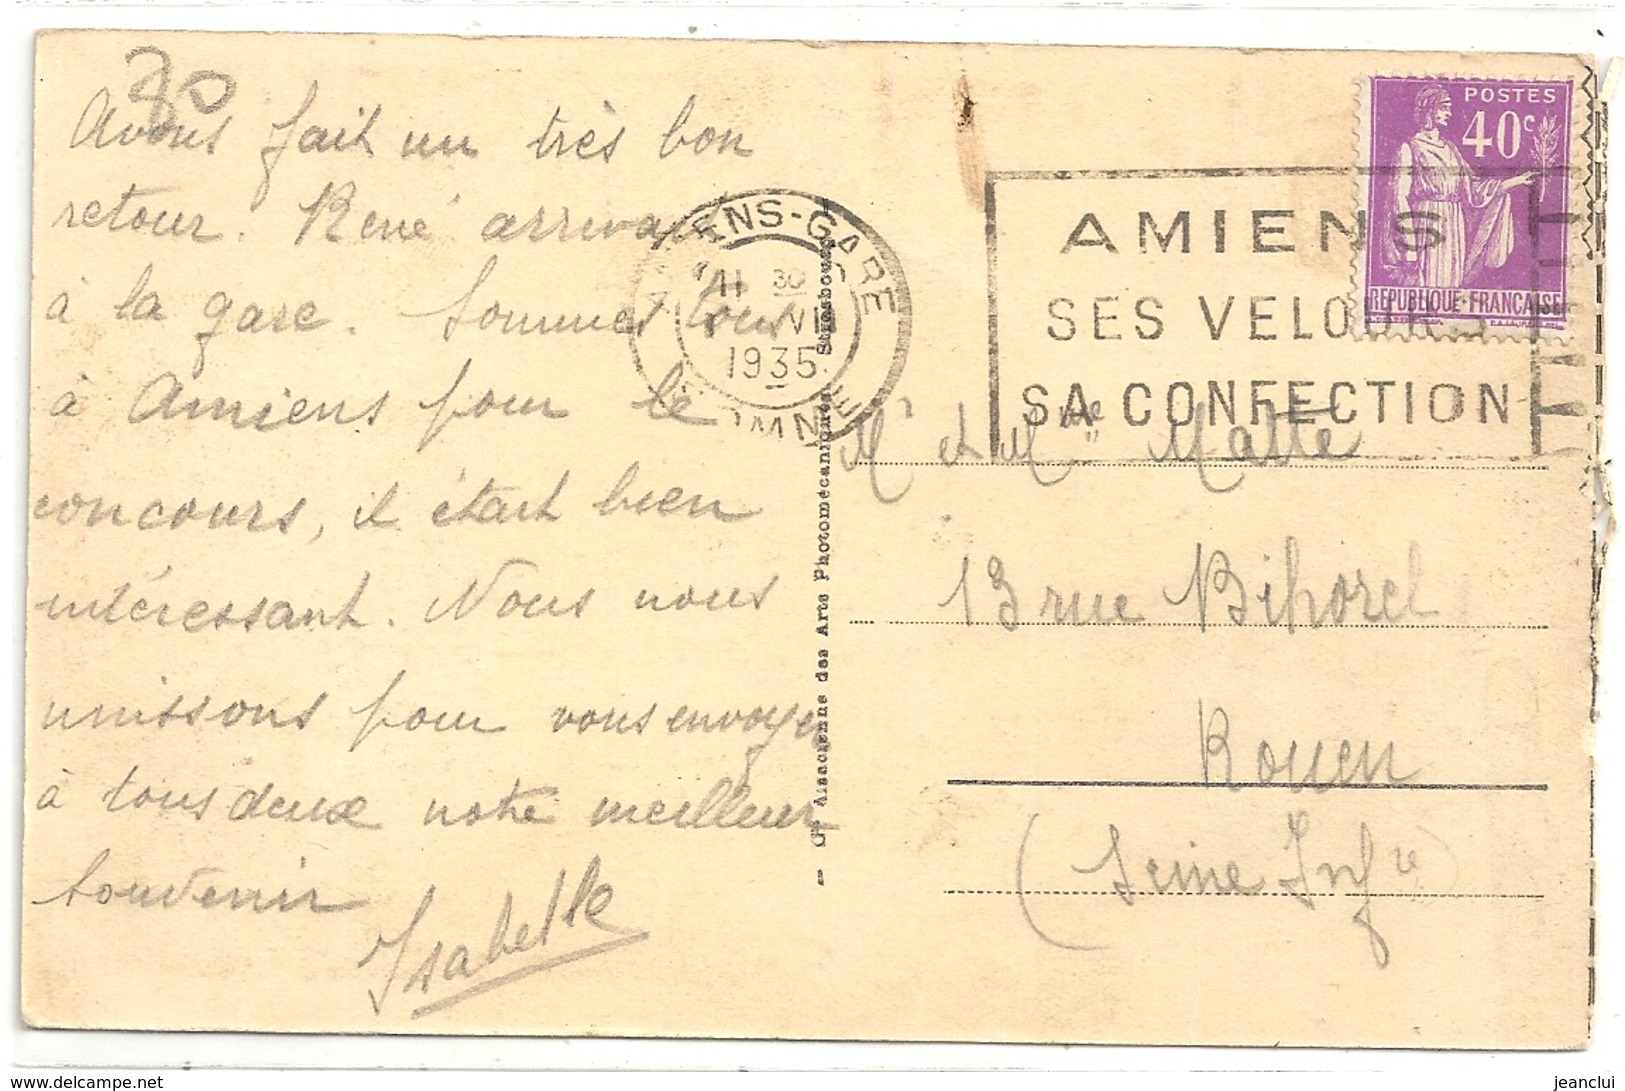 30
Avons fait un très bon
retour. René arrivait
à la gare. Sommes tous
à Amiens pour le
concours, il était bien
intéressant. Nous nous
unissons pour vous envoyer
à tous deux notre meilleur
souvenir
Isabelle
AMIENS-GARE
11 30
1935
SOMME
AMIENS
SES VELOURS
SA CONFECTION
POSTES
40c
REPUBLIQUE·FRANÇAISE
Cie Alsacienne des Arts Photomécaniques Strasbourg
Mr et Mme Matte
13 rue Bihorel
Rouen
(Seine Infre)
www.delcampe.net
jeanclui